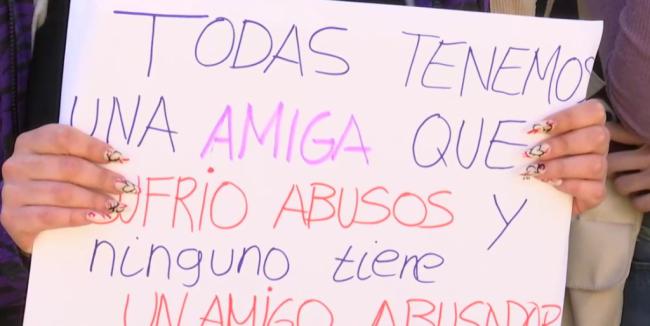 TODAS TENEMOS
UNA AMIGA QUE
SUFRIO ABUSOS Y
ninguno tiere
UN AMIGO ABUSADOR